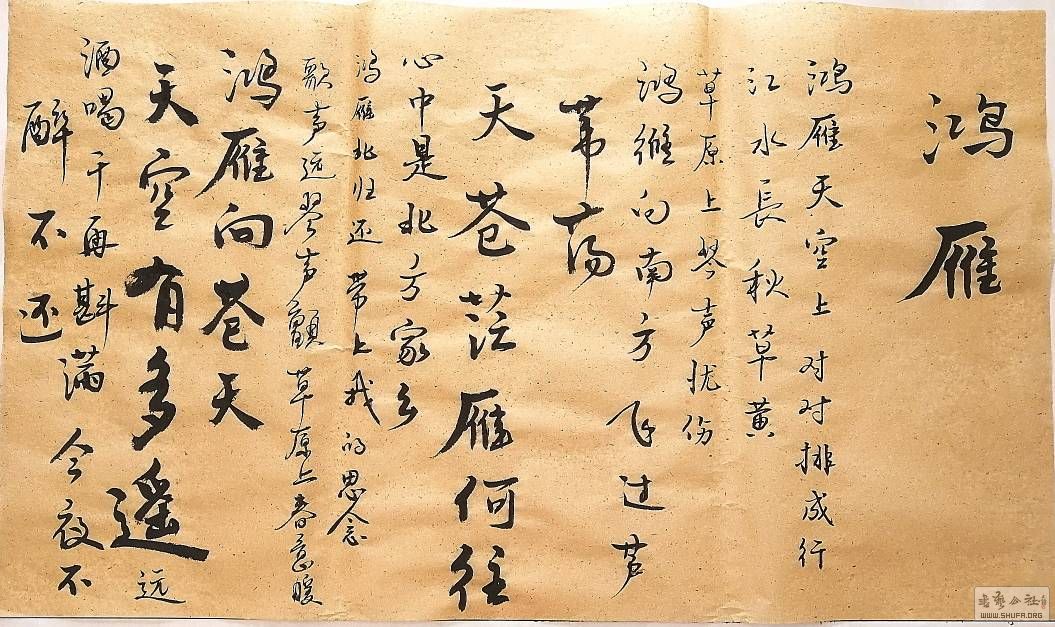 鸿雁
鸿雁天空上 对对排成行
江水長 秋草黄
草原上琴声忧伤
鸿雁向南方 飞过芦
苇荡
天苍茫雁何往
心中是北方家乡
鸿雁北归还 带上我的思念
歌声远琴声颤 草原上春意暖
鸿雁向苍天
天空有多遥远
酒喝干再斟满 今夜不
醉不还
书艺公社
WWW.SHUFA.ORG